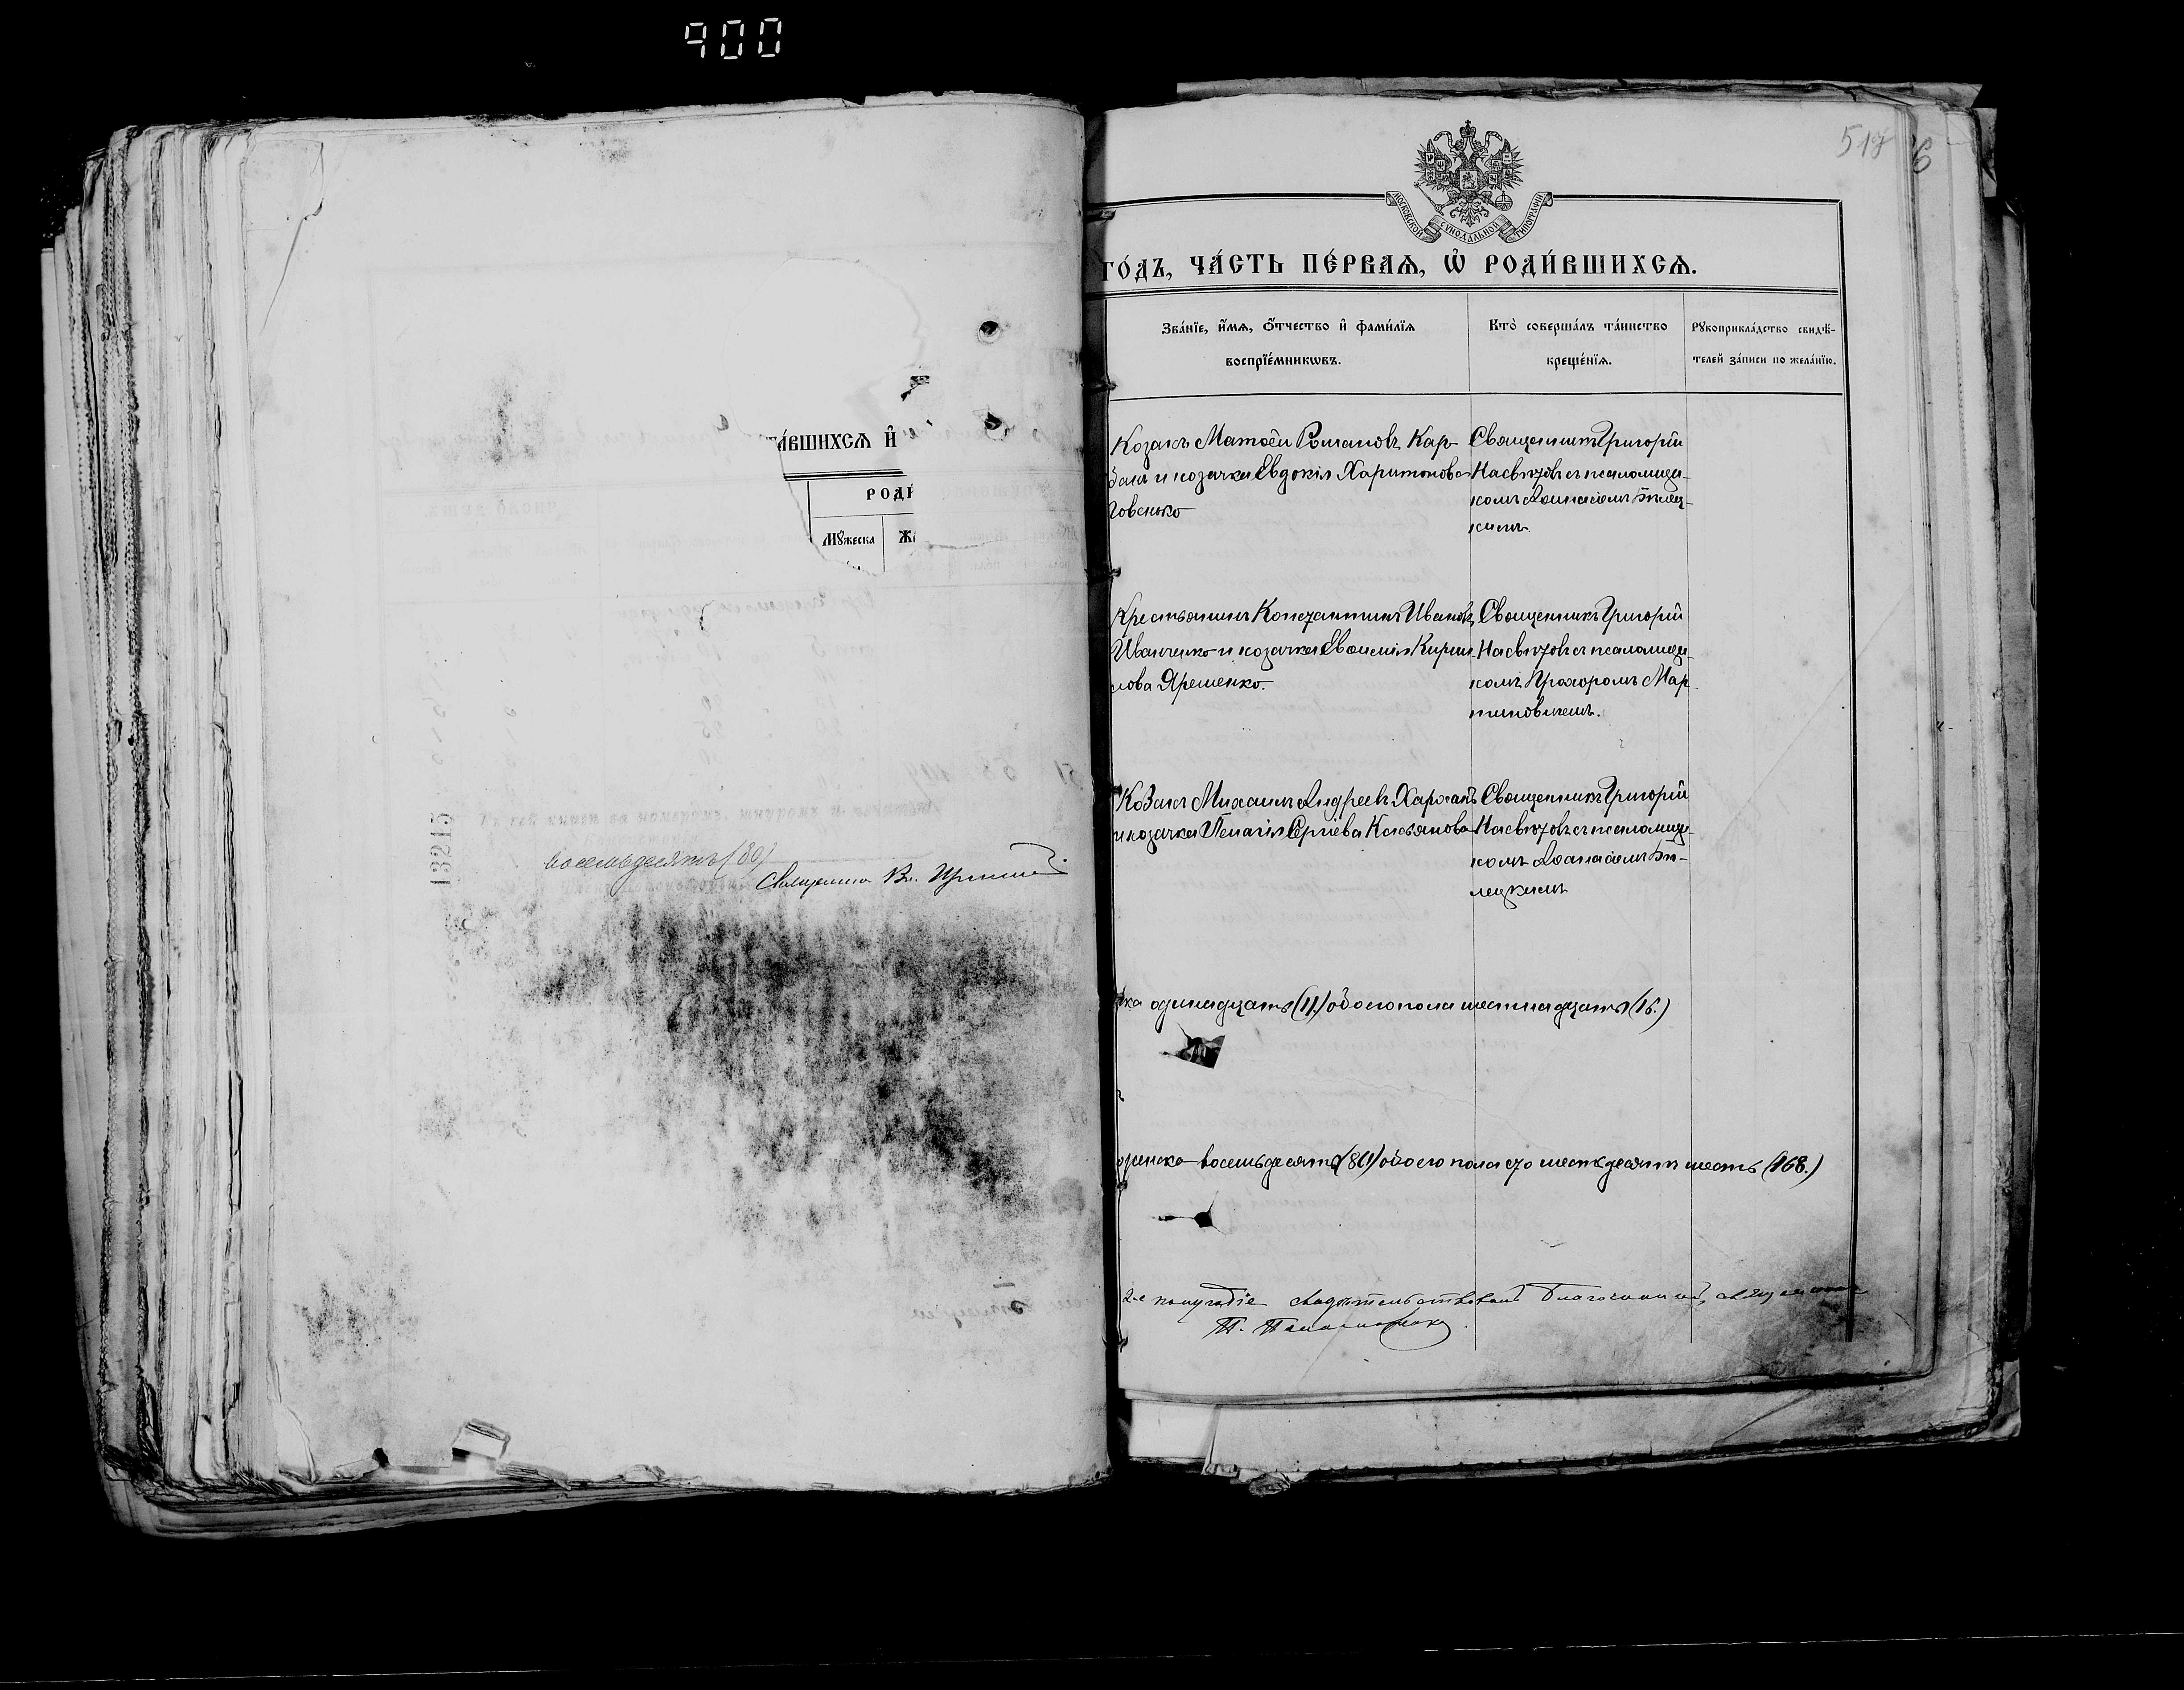 900
517
6
МОСКОВСКОЙ СѴНОДАЛЬНОЙ ТИПОГРАФІИ
ГО́ДЪ, ЧА́СТЬ ПЕ́РВАѦ, Ѽ РОДИ́ВШИХСѦ.
Зва́нїе, и҆́мѧ, ѻ҆́тчество и҆ фами́лїѧ
воспрїе́мникѡвъ.
Кто̀ соверша́лъ та́инство
креще́нїѧ.
Рꙋкоприкла́дство свидѣ́-
телей за́писи по жела́нїю.
Козакъ Матѳей Романовъ Кар-
бан и козачка Евдокія Харитонова
Говенько
Священникъ Григорій
Насвѣтовъ съ псаломщи-
комъ Аѳанасіемъ Бѣлец-
кимъ.
Крестьянинъ Константинъ Ивановъ
Иванченко и козачка Евѳимія Кирил-
лова Яременко.
Священникъ Григорій
Насвѣтовъ съ псаломщи-
комъ Прохоромъ Мар-
тиновичемъ.
Козакъ Михаилъ Андреевъ Харханъ
и козачка Пелагія Сергіева Касьянова
Священникъ Григорій
Насвѣтовъ съ псаломщи-
комъ Аѳанасіемъ Бѣ-
лецкимъ
ска одинадцать (11.) обоего пола шестнадцать (16.)
женска восемьдесятъ (80) обоего пола сто шестьдесятъ шесть (166.)
2-е полугодіе свидѣтельствовалъ Благочинный, священникъ
ТА́ВШИХСѦ И҆
РОДИ
Мꙋ́жеска
Же
13215
восемьдесятъ (80)
Священникъ Вл.